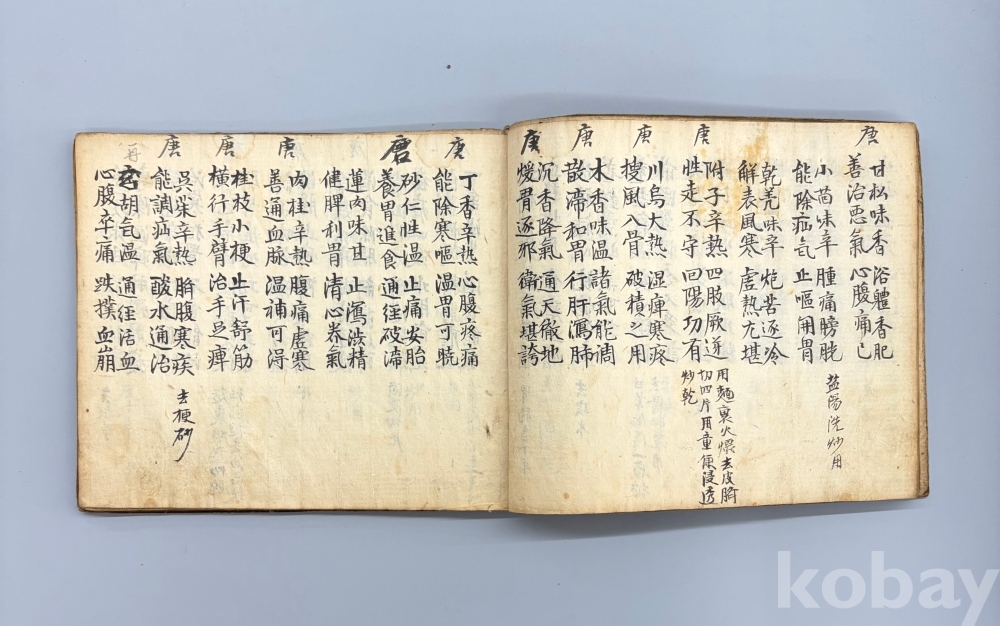 唐
甘松味香 浴體香肥
善治悪氣 心腹痛已
小茴味辛 腫痛膀胱
能除疝气 止嘔開胃
盐湯洗炒用
乾羌味辛 炮苦逐冷
解表風寒 虚热尤堪
唐
附子辛熱 四肢厥逆
性走不守 回陽功有
用麺裹火煨去皮臍
切四片用童便浸透
炒乾
唐
川烏大熱 湿痺寒疼
搜風入骨 破積之用
唐
木香味温 諸氣能调
散滯和胃 行肝瀉肺
唐
沉香降氣 通天徹地
煖胃逐邪 衛氣堪誇
唐
丁香辛热 心腹疼痛
能除寒嘔 温胃可晥
唐
砂仁性温 止痛安胎
養胃追食 通经破滯
蓮肉味甘 止瀉澁精
健脾利胃 清心养氣
唐
肉桂辛热 腹痛虚寒
善通血脉 温補可淂
唐
桂枝小梗 止汗舒筋
横行手臂 治手足痺
唐
吳茱辛熱 臍腹寒疾
能調疝氣 酸水通治
去梗砂
再
玄胡气温 通经活血
心腹卒痛 跌撲血崩
kobay